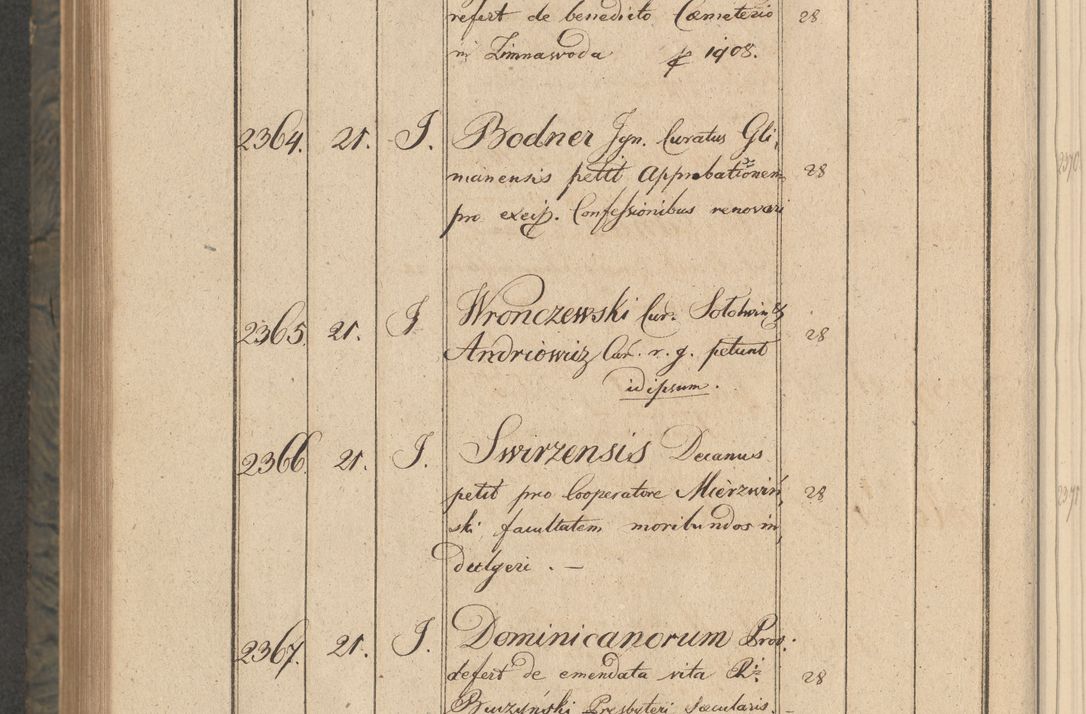 refert de benedicto Cæmeterio 28
in Zimnawoda 1908.
2364. 21. J. Bodner Jgn. Curatus Gli,
nianensis petit Approbationem 28
pro excip. Confessionibus renovari
2365. 21. J Wronczewski Cur. Sołotwin &
Andriowicz Cur. r. g. petunt 28
idipsum.
2366. 21. J. Swirzensis Decanus
petit pro Cooperatore Mierzwiń, 28
ski, facultatem moribundos in,
dulgeri. —
2367. 21. J. Dominicanorum Prov.
refert de emendata vita 28
Buczyński Presbyteri Sæcularis.